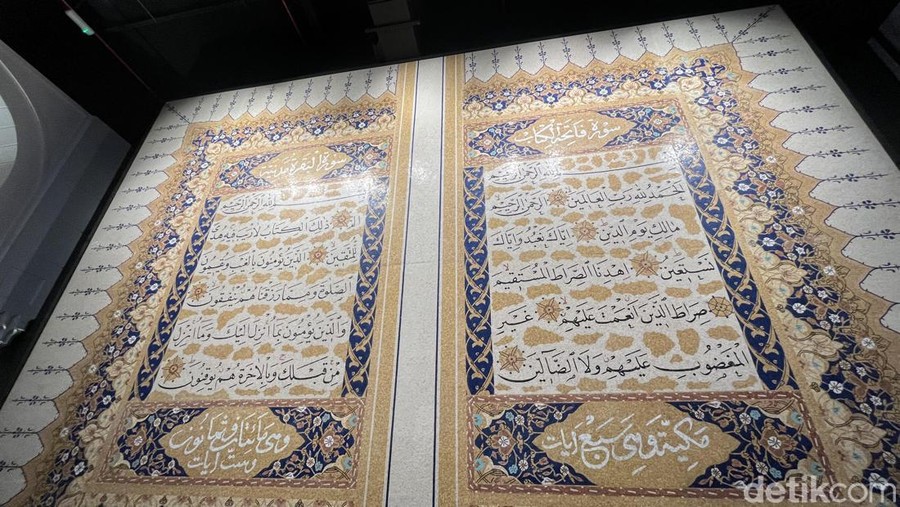 سورة فاتحة الكتاب
بسم الله الرحمن الرحيم
الحمد لله رب العالمين الرحمن الرحيم
مالك يوم الدين اياك نعبد واياك
نستعين اهدنا الصراط المستقيم
صراط الذين انعمت عليهم غير
المغضوب عليهم ولا الضالين
مكية وهي سبع آيات
سورة البقرة مدنية
بسم الله الرحمن الرحيم
الم ذلك الكتاب لا ريب فيه هدى
للمتقين الذين يؤمنون بالغيب ويقيمون
الصلوة ومما رزقناهم ينفقون
والذين يؤمنون بما انزل اليك وما انزل
من قبلك وبالاخرة هم يوقنون
وهي مائتان وثمانون
وست آيات
detikcom